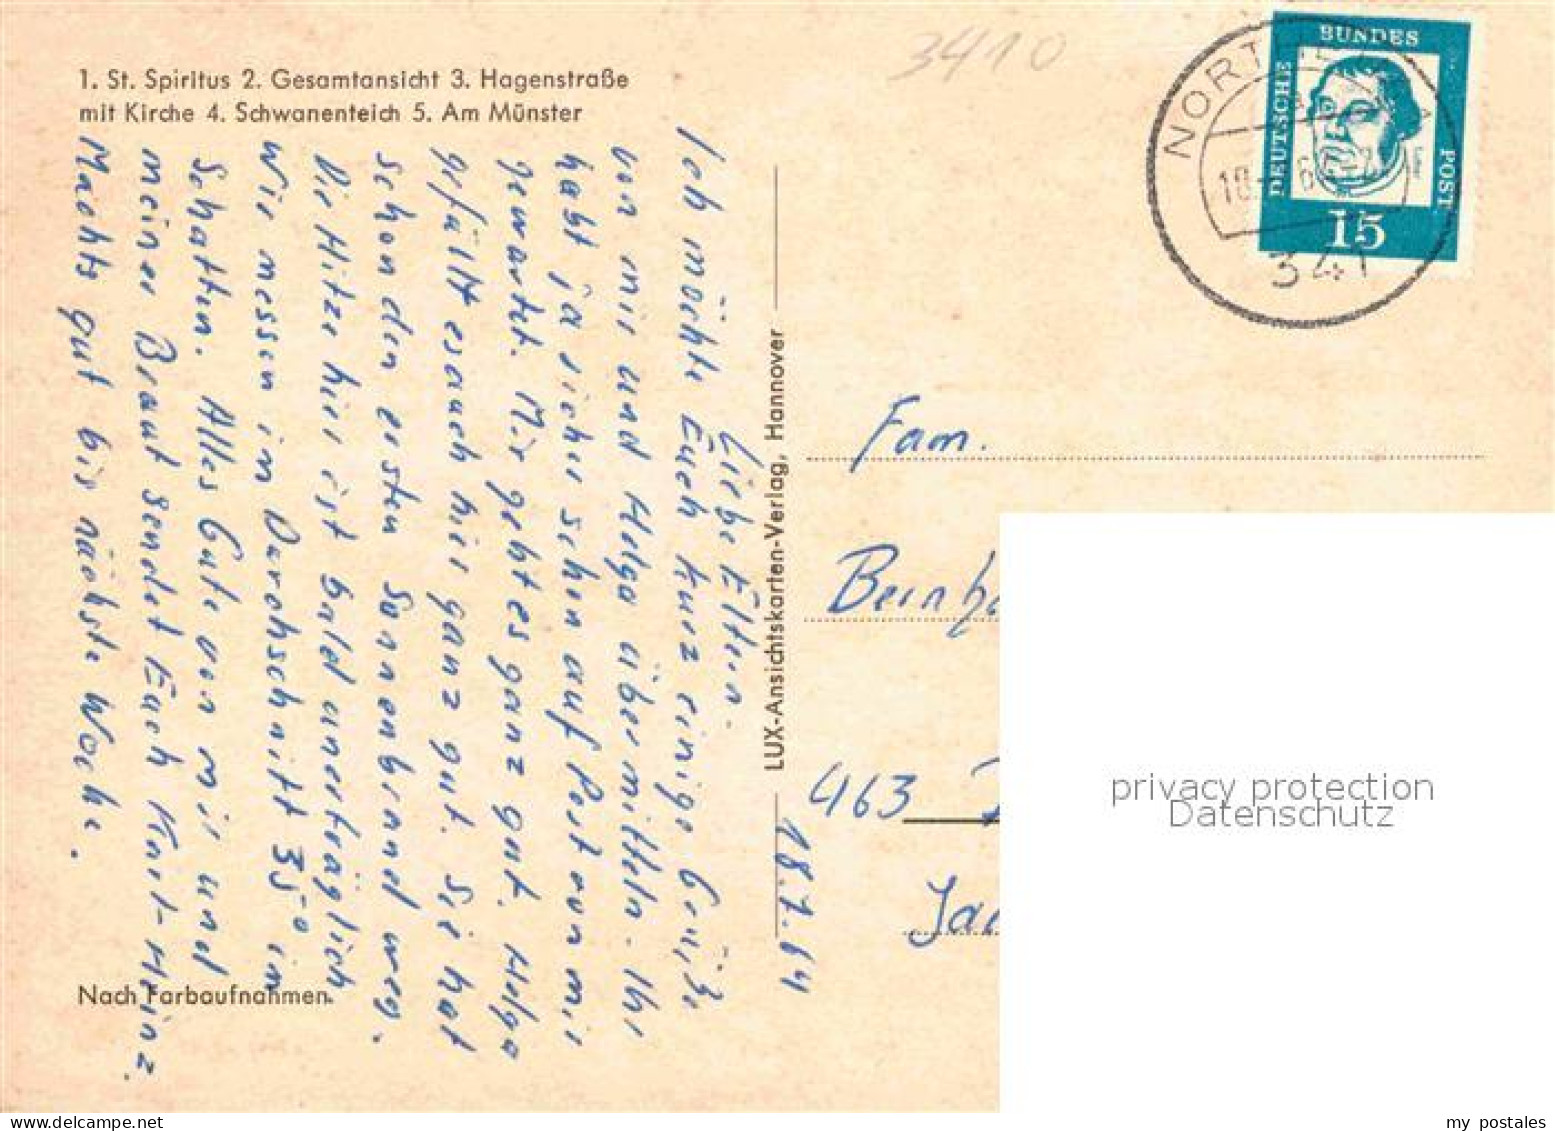 1. St. Spiritus 2. Gesamtansicht 3. Hagenstraße
mit Kirche 4. Schwanenteich 5. Am Münster
3410
BUNDES
DEUTSCHE
POST
15
NORTHEIM
341
18.7.64
Liebe Eltern.
Ich möchte Euch kurz einige Grüße
von mir und Helga übermitteln. Ihr
habt ja sicher schon auf Post von mir
gewartet. Mir geht es ganz gut. Helga
gefällt es auch hier ganz gut. Sie hat
schon den ersten Sonnenbrand weg.
Die Hitze hier ist bald unerträglich
Wir messen im Durchschnitt 35° im
Schatten. Alles Gute von mir und
meiner Braut sendet Euch Karl-Heinz.
Machts gut bis nächste Woche.
Nach Farbaufnahmen.
LUX-Ansichtskarten-Verlag, Hannover
Fam.
463
privacy protection
Datenschutz
my postales